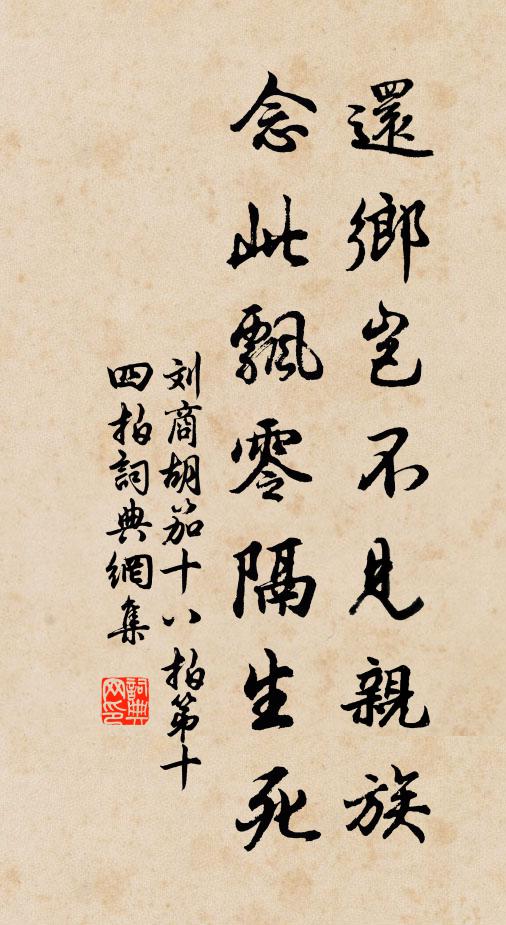 還鄉豈不見親族
念此飄零隔生死
刘商胡笳十八拍第十
四拍詞典網集
詞典
网印